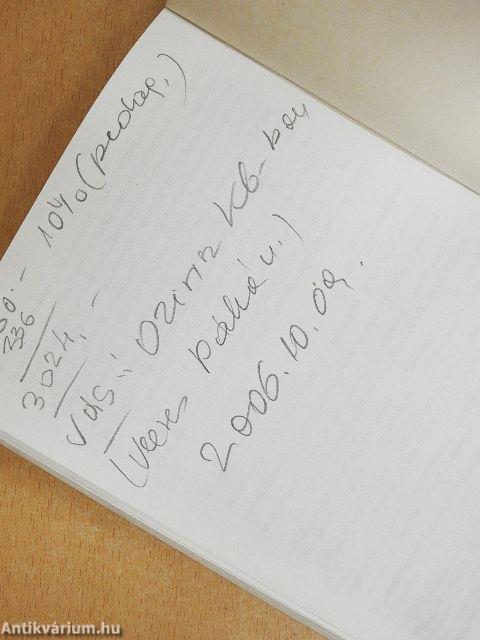 60.- 10% (pedag.)
336
3024.-
Vás.: Ozirisz Kb-ban
(Veres Pálné u.)
2006.10.09.
Antikvárium.hu